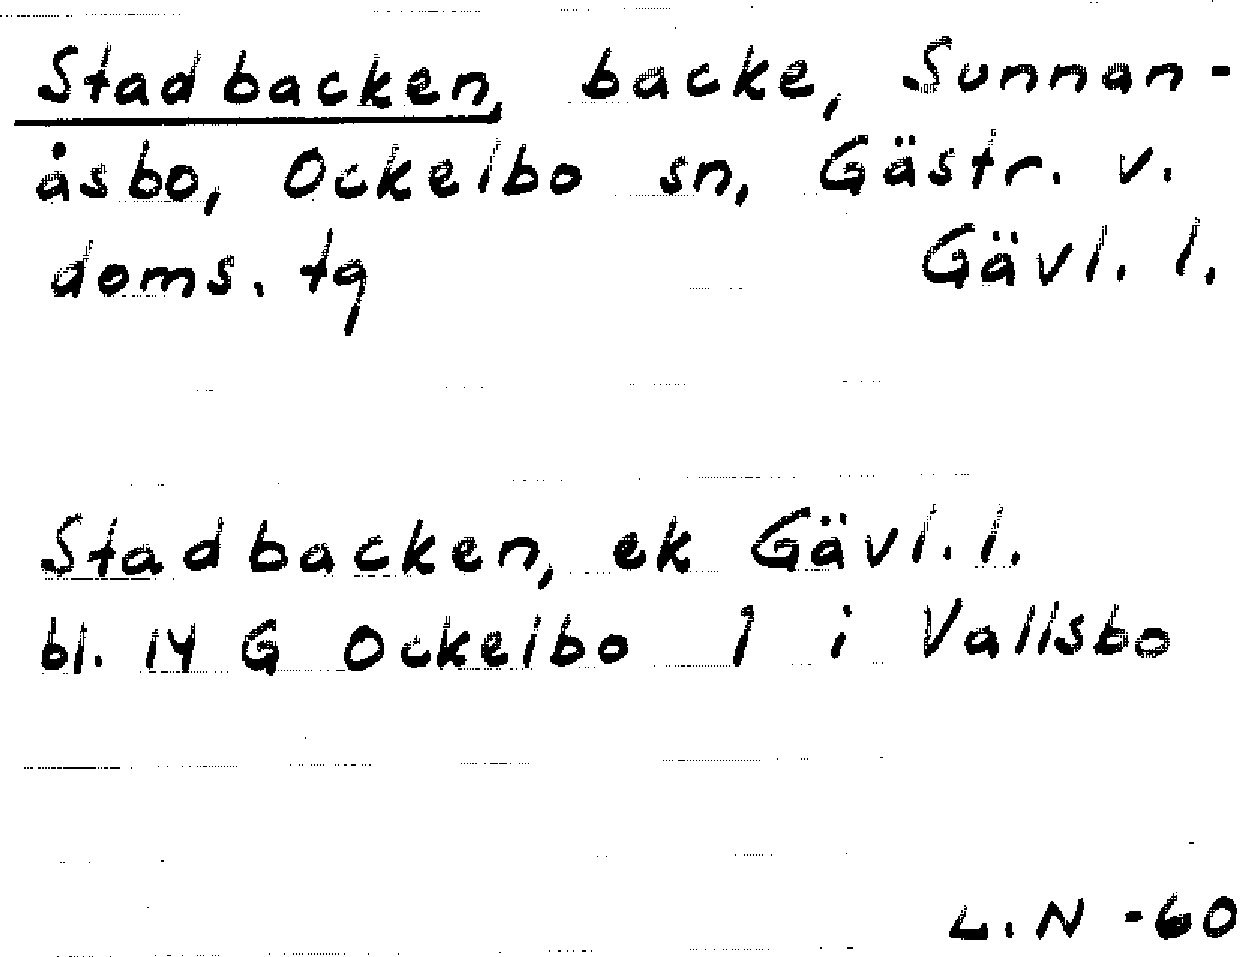 Stadbacken, backe, Sunnan-
åsbo, Ockelbo sn, Gästr. v.
doms. tg Gävl. l.
Stadbacken, ek Gävl. l.
bl. 14 G Ockelbo 1 i Vallsbo
L.N -60